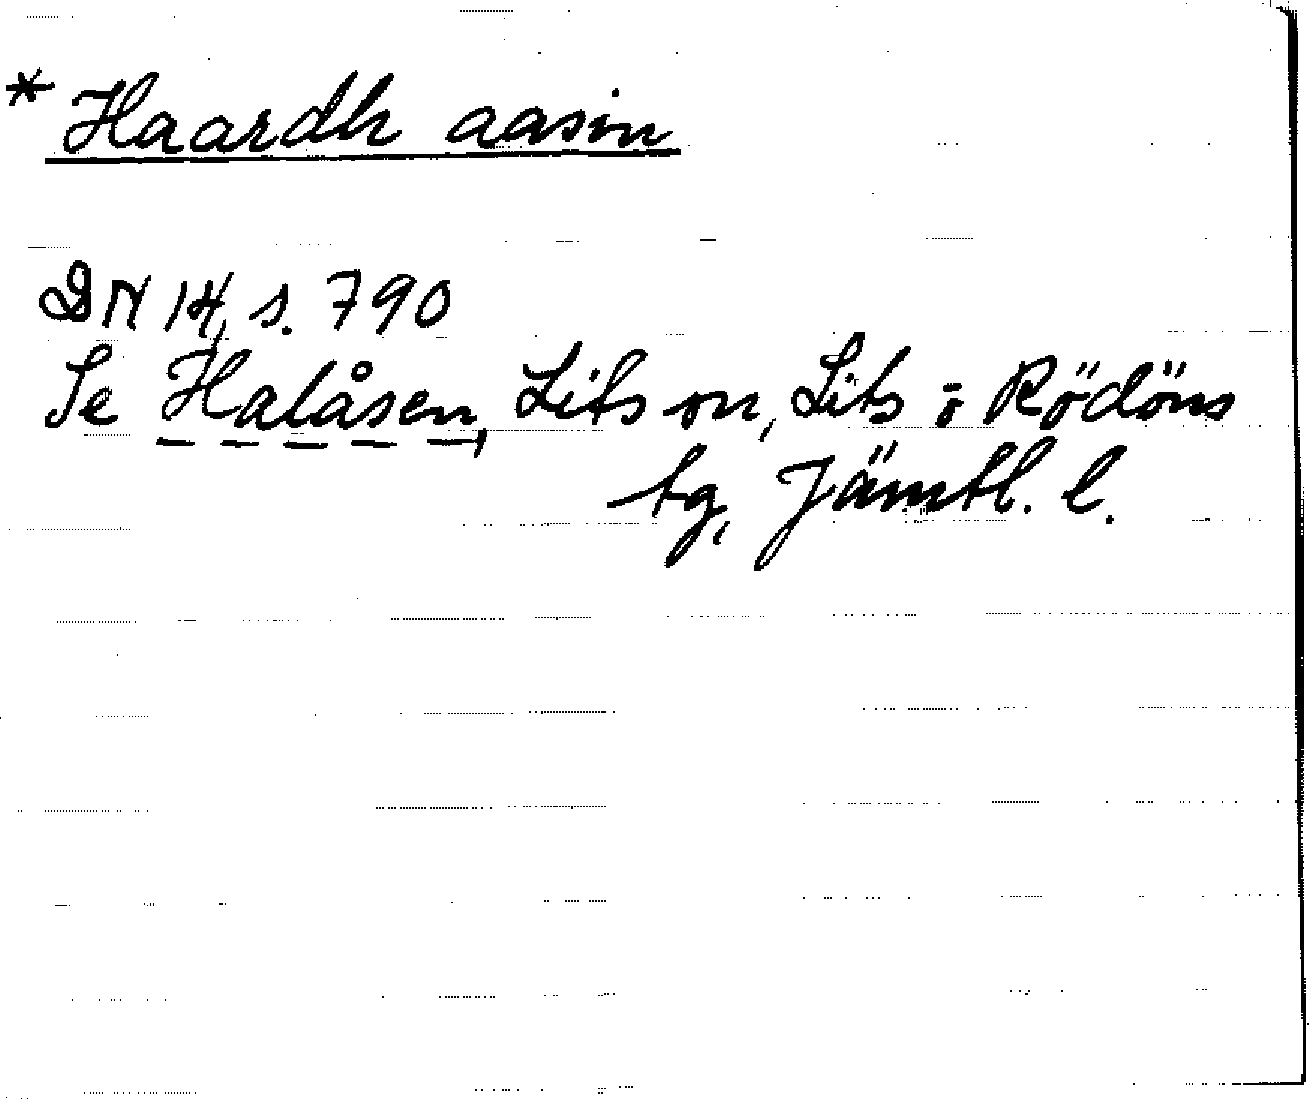 * Haardh aasin
DN 14, s. 790
Se Halåsen, Lits sn, Lits o Rödöns
tg, Jämtl. l.